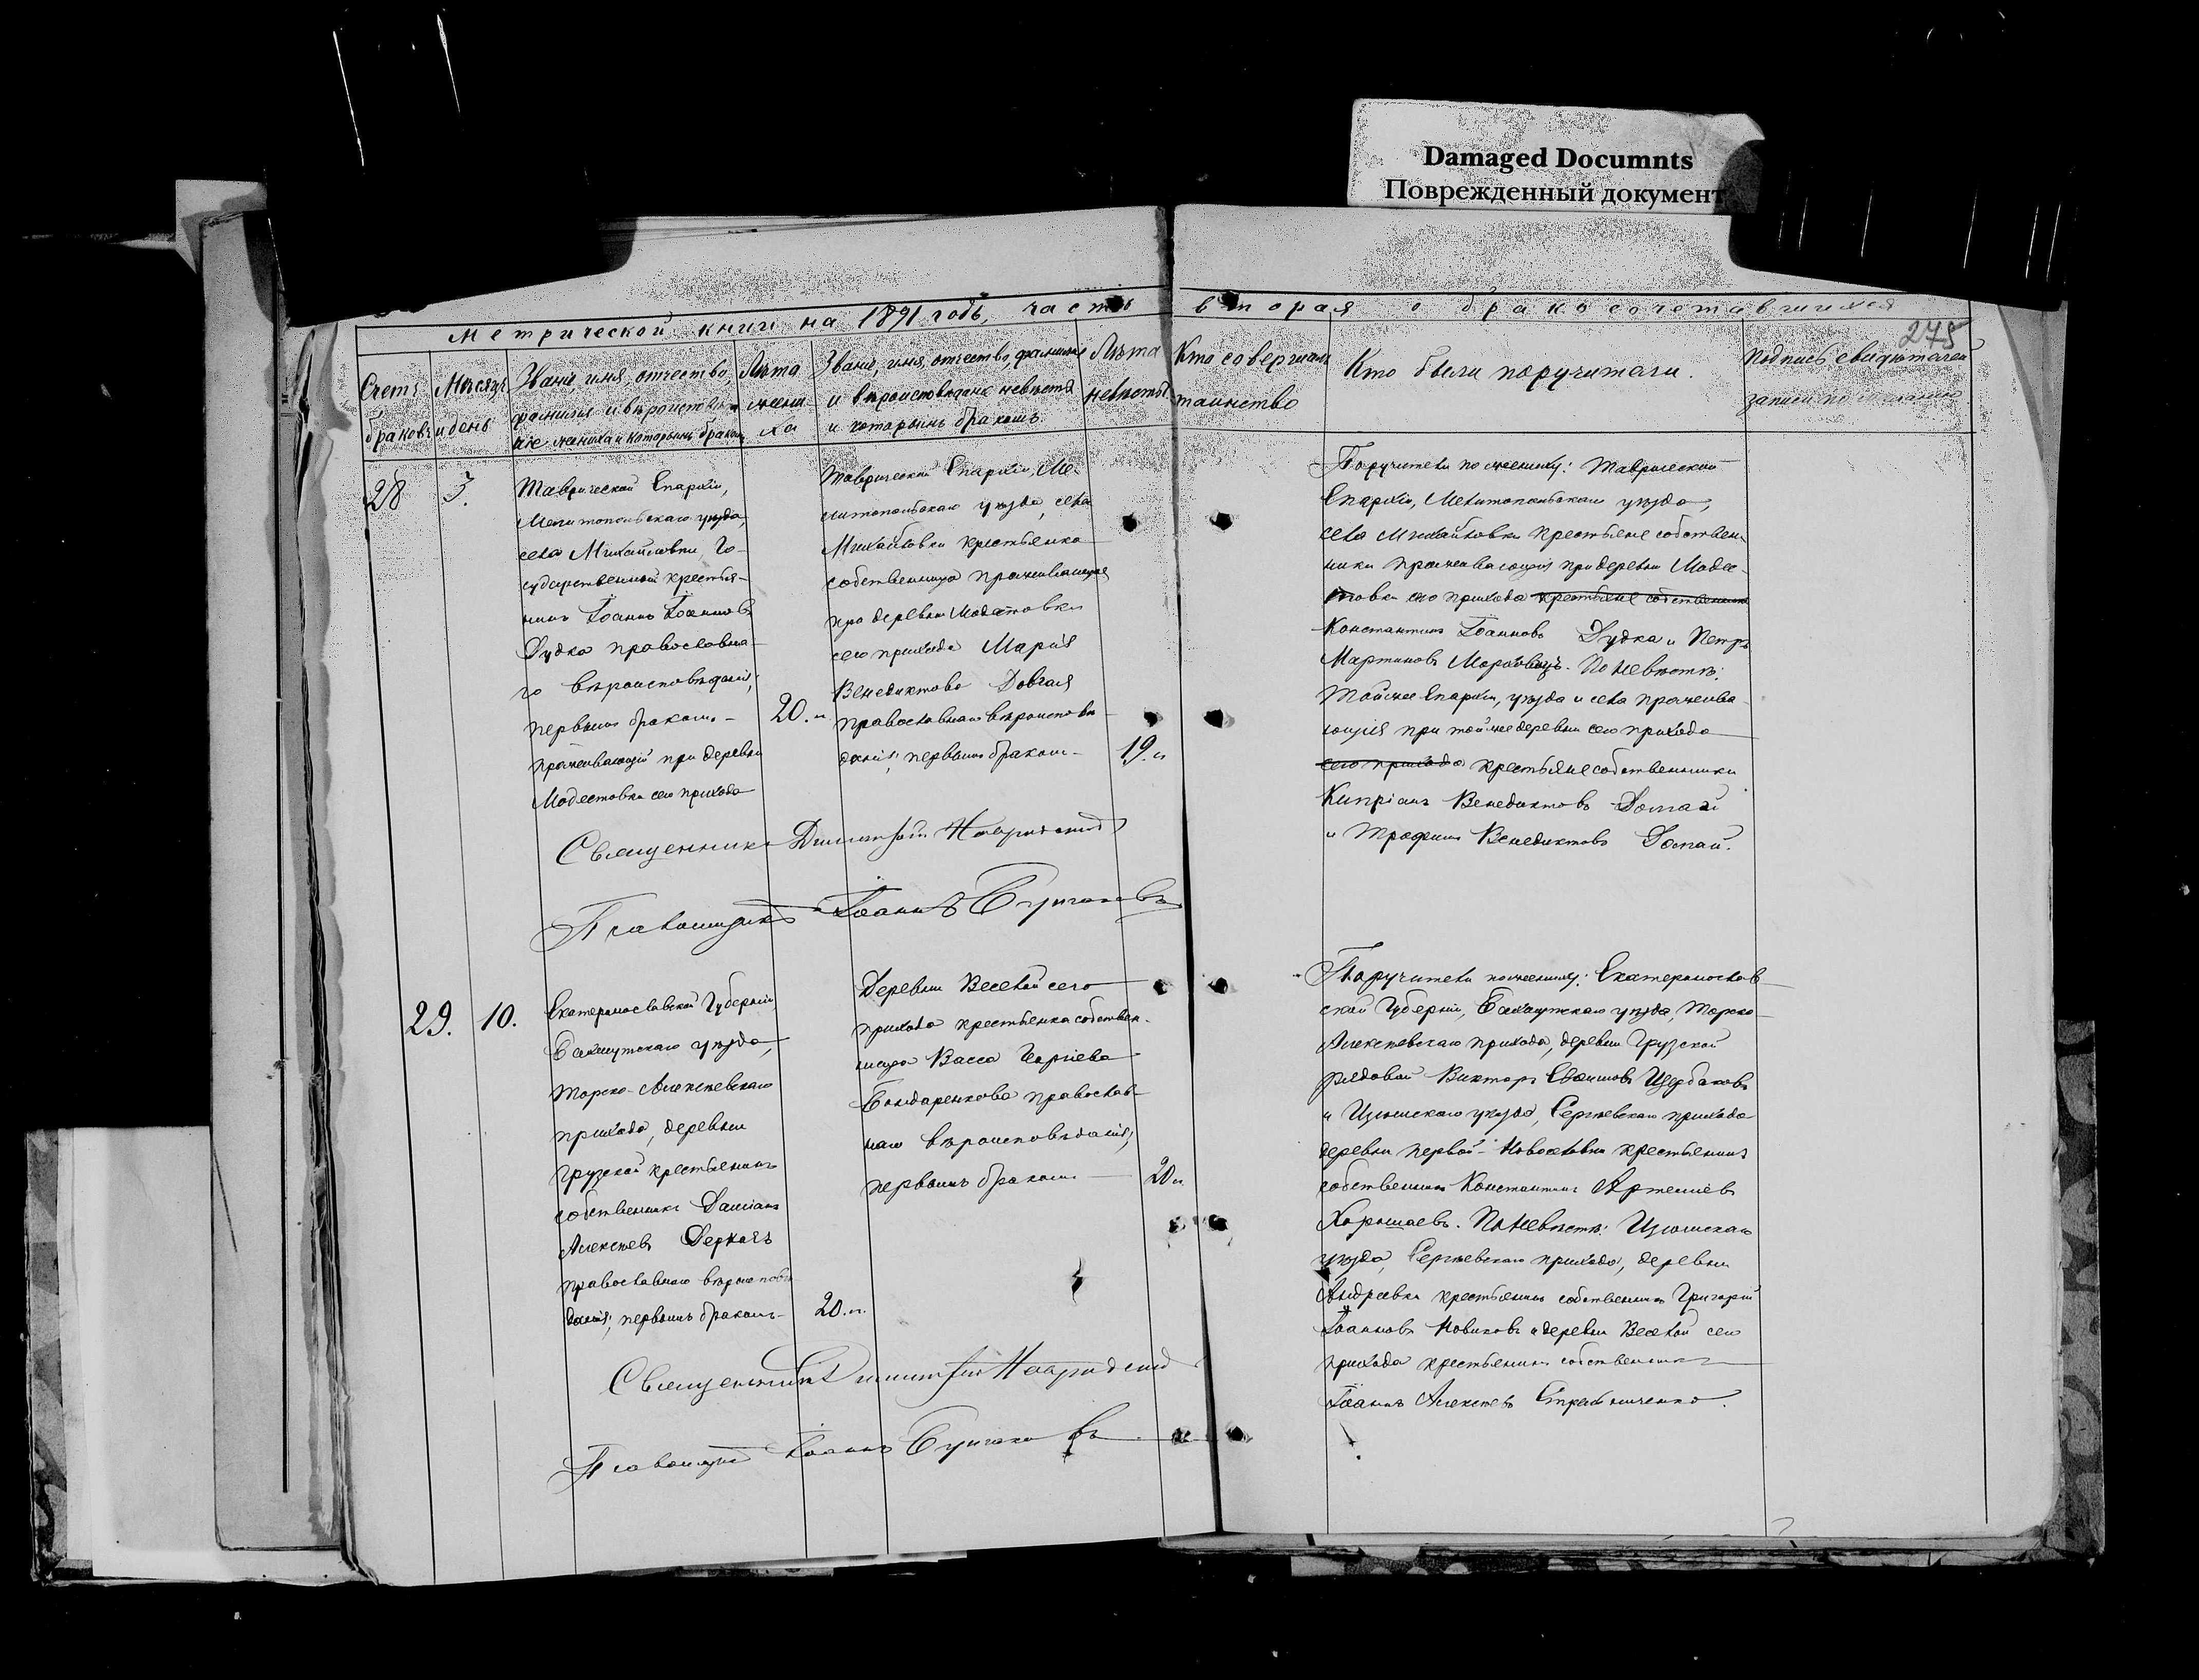 Damaged Documnts
Поврежденный документ
Метрической книги на 1891 годъ, часть вторая о бракосочетавшихся
275
Счетъ браковъ
Мѣсяцъ и день
Званіе, имя, отчество, фамилія и вѣроисповѣданіе жениха и которымъ бракомъ
Лѣта жениха
Званіе, имя, отчество, фамилія и вѣроисповѣданіе невѣсты и которымъ бракомъ.
Лѣта невѣсты
Кто совершалъ таинство
Кто были поручители.
Подпись свидѣтелей записи по желанію
28
3.
Таврической Епархіи,
Мелитопольскаго уѣзда,
села Михайловки, Го-
сударственный крестья-
нинъ Іоаннъ Іоанновъ
Дудка православна-
го вѣроисповѣданія,
первымъ бракомъ-
проживающій при деревни
Модестовка сего прихода
20.
Таврической Епархіи, Ме-
литопольскаго уѣзда, села
Михайловки крестьянка
собственница проживающая
при деревни Модестовки
сего прихода Марія
Венедиктова Довгая
православнаго вѣроисповѣ-
данія, первымъ бракомъ-
19.
Поручители по жениху: Таврической
Епархіи, Мелитопольскаго уѣзда,
села Михайловки крестьяне собствен-
ники проживающія при деревни Модес-
товки сего прихода крестьяне собственники
Константинъ Іоанновъ Дудка и Петръ
Мартиновъ По невѣстѣ:
Тойже Епархіи, уѣзда и села прожива-
ющія при тойже деревни сего прихода
сего прихода крестьяне собственники
Кипріанъ Венедиктовъ
и Трофимъ Венедиктовъ
Священникъ Димитрій
Іоаннъ
29.
10.
Екатеринославской Губерніи,
Бахмутскаго уѣзда,
Торско-Алексѣевскаго
прихода, деревни
Грузской крестьянинъ
собственникъ Даміанъ
Алексѣевъ Деркачъ
православнаго вѣроисповѣ-
данія, первымъ бракомъ-
20.
Деревни Веселой сего
прихода крестьянка собствен-
ница Васса Георгіева
Бондаренкова православ-
наго вѣроисповѣданія,
первымъ бракомъ
20
Поручители по жениху: Екатеринослав-
ской Губерніи, Бахмутскаго уѣзда, Торско-
Алексѣевскаго прихода, деревни Грузской
рядовой Викторъ Щербаковъ
и Изюмскаго уѣзда, Сергѣевскаго прихода
деревни первой-Новоселовки крестьянинъ
собственникъ Константинъ Артемьевъ
Хорошаевъ. По невѣстѣ: Изюмскаго
уѣзда, Сергѣевскаго прихода, деревни
Андреевки крестьянинъ собственникъ Григорій
Іоанновъ Новиковъ и деревни Веселой сего
прихода крестьянинъ собственникъ
Іоаннъ Алексѣевъ
Священникъ Димитрій
Іоаннъ